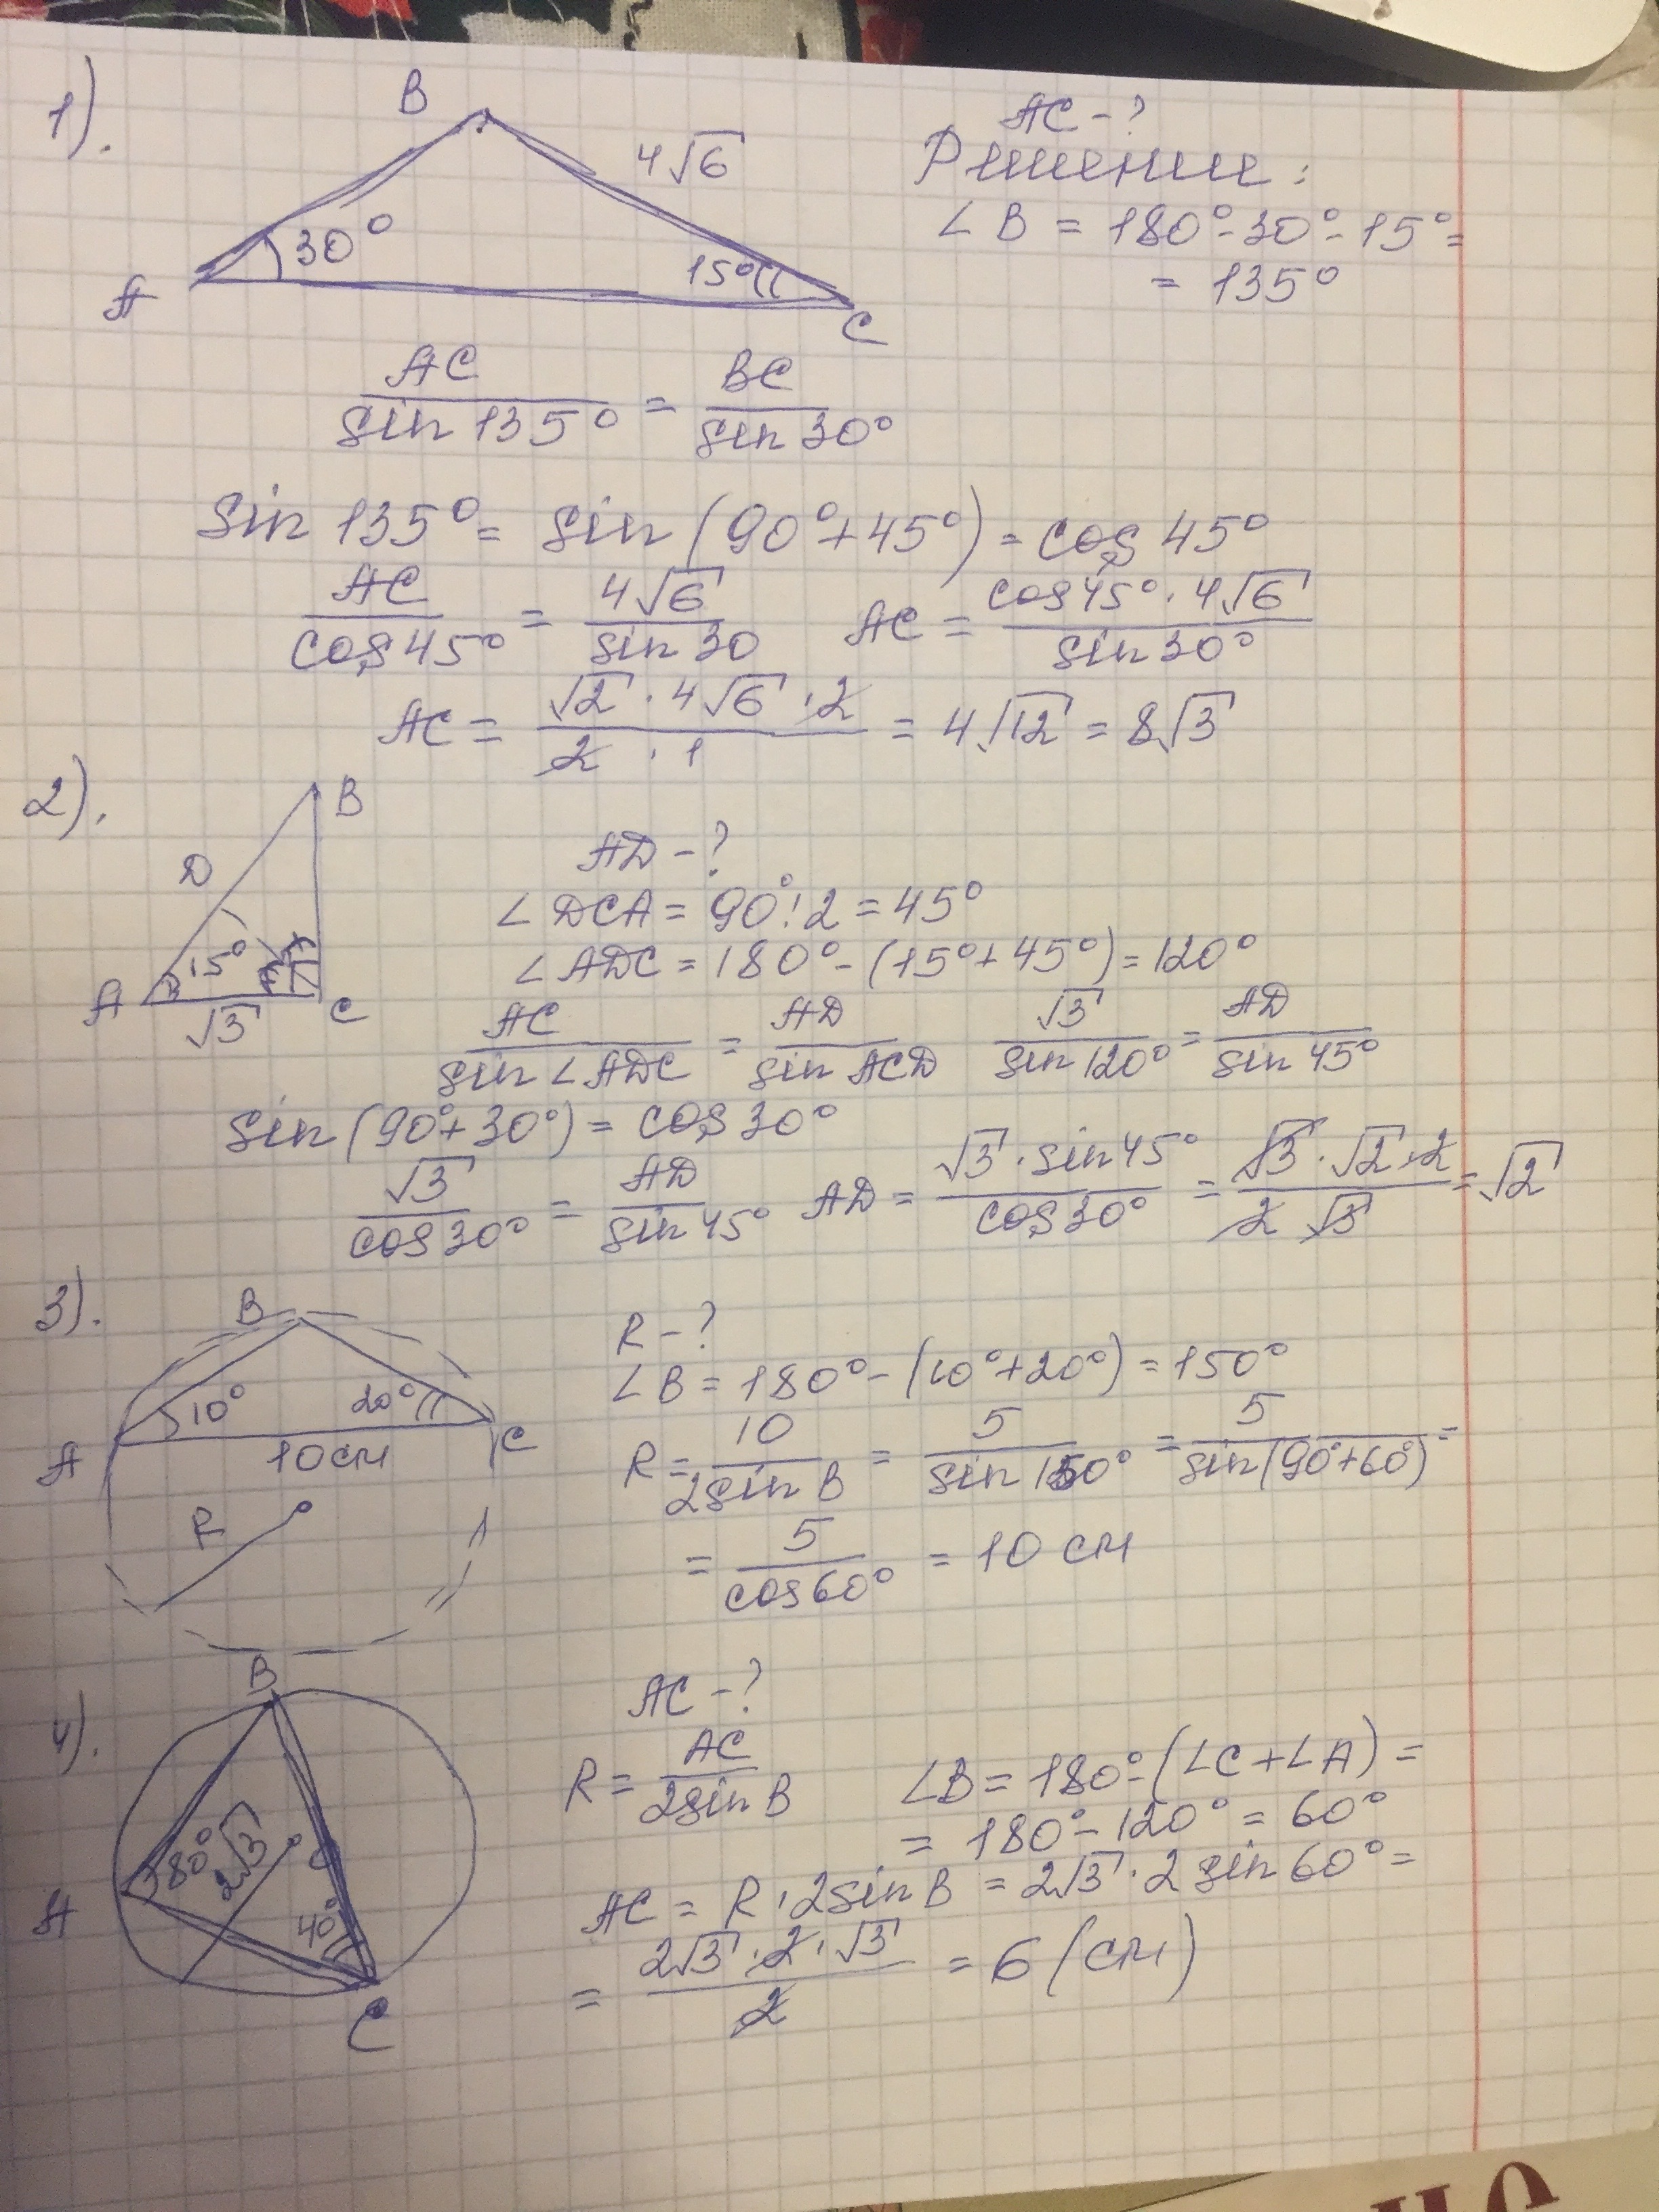 1).
B
4√6
30°
15°
A
C
AC - ?
Решение:
∠B = 180° - 30° - 15° =
= 135°
AC / sin 135° = BC / sin 30°
sin 135° = sin (90° + 45°) = cos 45°
AC / cos 45° = 4√6 / sin 30   AC = cos 45° · 4√6 / sin 30°
AC = √2 · 4√6 · 2 / 2 · 1 = 4√12 = 8√3
2).
B
D
15°
A
√3
C
AD - ?
∠DCA = 90° : 2 = 45°
∠ADC = 180° - (15° + 45°) = 120°
AC / sin ∠ADC = AD / sin ACD   √3 / sin 120° = AD / sin 45°
sin (90° + 30°) = cos 30°
√3 / cos 30° = AD / sin 45°   AD = √3 · sin 45° / cos 30° = √3 · √2 · 2 / 2 √3 = √2
3).
B
10°
20°
A
10 см
C
R
R - ?
∠B = 180° - (10° + 20°) = 150°
R = 10 / 2 sin B = 5 / sin 150° = 5 / sin (90° + 60°) =
= 5 / cos 60° = 10 см
4).
B
80°
2√3
A
40°
C
AC - ?
R = AC / 2 sin B   ∠B = 180° - (∠C + ∠A) =
= 180° - 120° = 60°
AC = R · 2 sin B = 2√3 · 2 sin 60° =
= 2√3 · 2 · √3 / 2 = 6 (см)